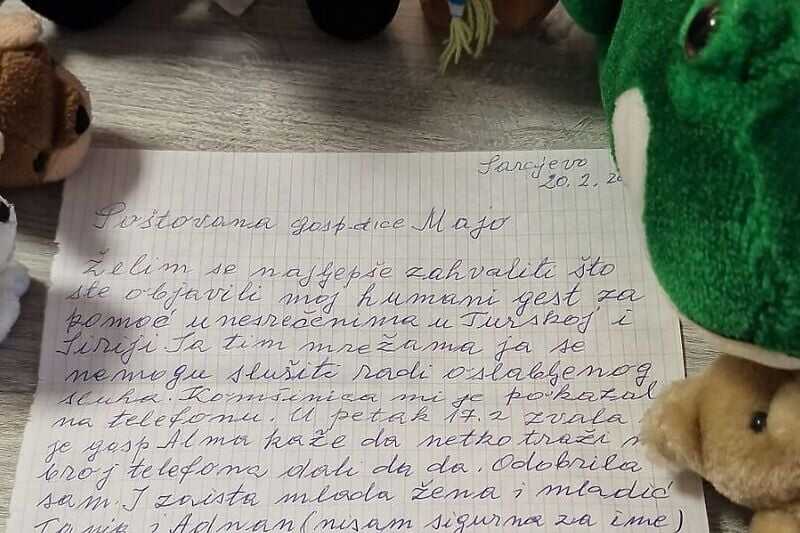 Sarajevo
20.2.20
Poštovana gosp-dice Majo
Želim se najljepše zahvaliti što
ste objavili moj humani gest za
pomoć unesrečenima u Turskoj i
Siriji Ja tim mrežama ja se
nemogu služiti radi oslabljenog
sluha. Komšinica mi je pokazal
na telefonu. U petak 17.2 zvala
je gosp Alma kaže da netko traži
broj telefona dali da da. Odobrila
sam. I zaista mlada žena i mladić
i Adnan (nisam sigurna za ime)